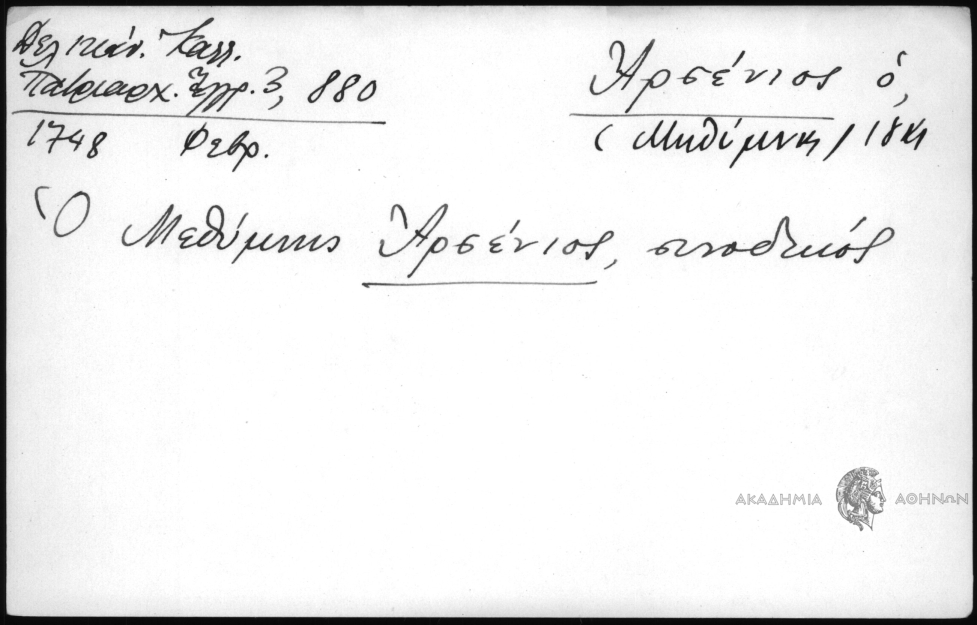 Δελικάν. Καλλ.
Πατριαρχ. Ἔγγρ. 3, 880
1748 Φεβρ.
Ἀρσένιος ὁ,
(Μηθίμνης) 18
Ὁ Μεθύμνης Ἀρσένιος, συνοδικός
ΑΚΑΔΗΜΙΑ ΑΘΗΝΩΝ